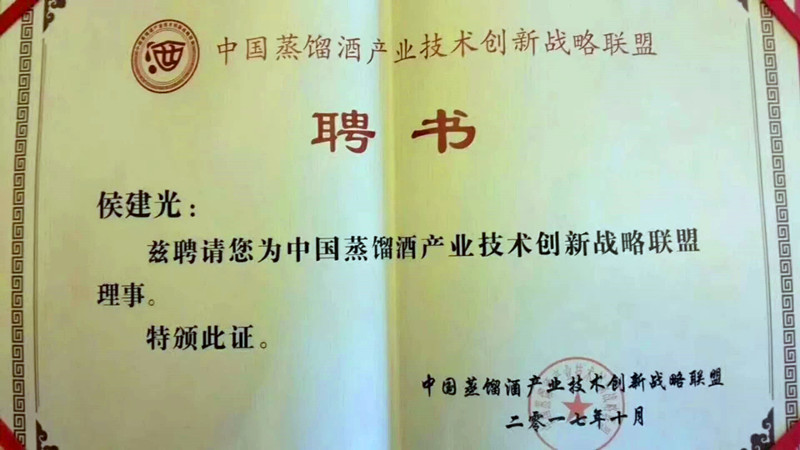 中国蒸馏酒产业技术创新战略联盟
聘书
侯建光：
兹聘请您为中国蒸馏酒产业技术创新战略联盟
理事。
特颁此证。
中国蒸馏酒产业技术创新战略联盟
二零一七年十月